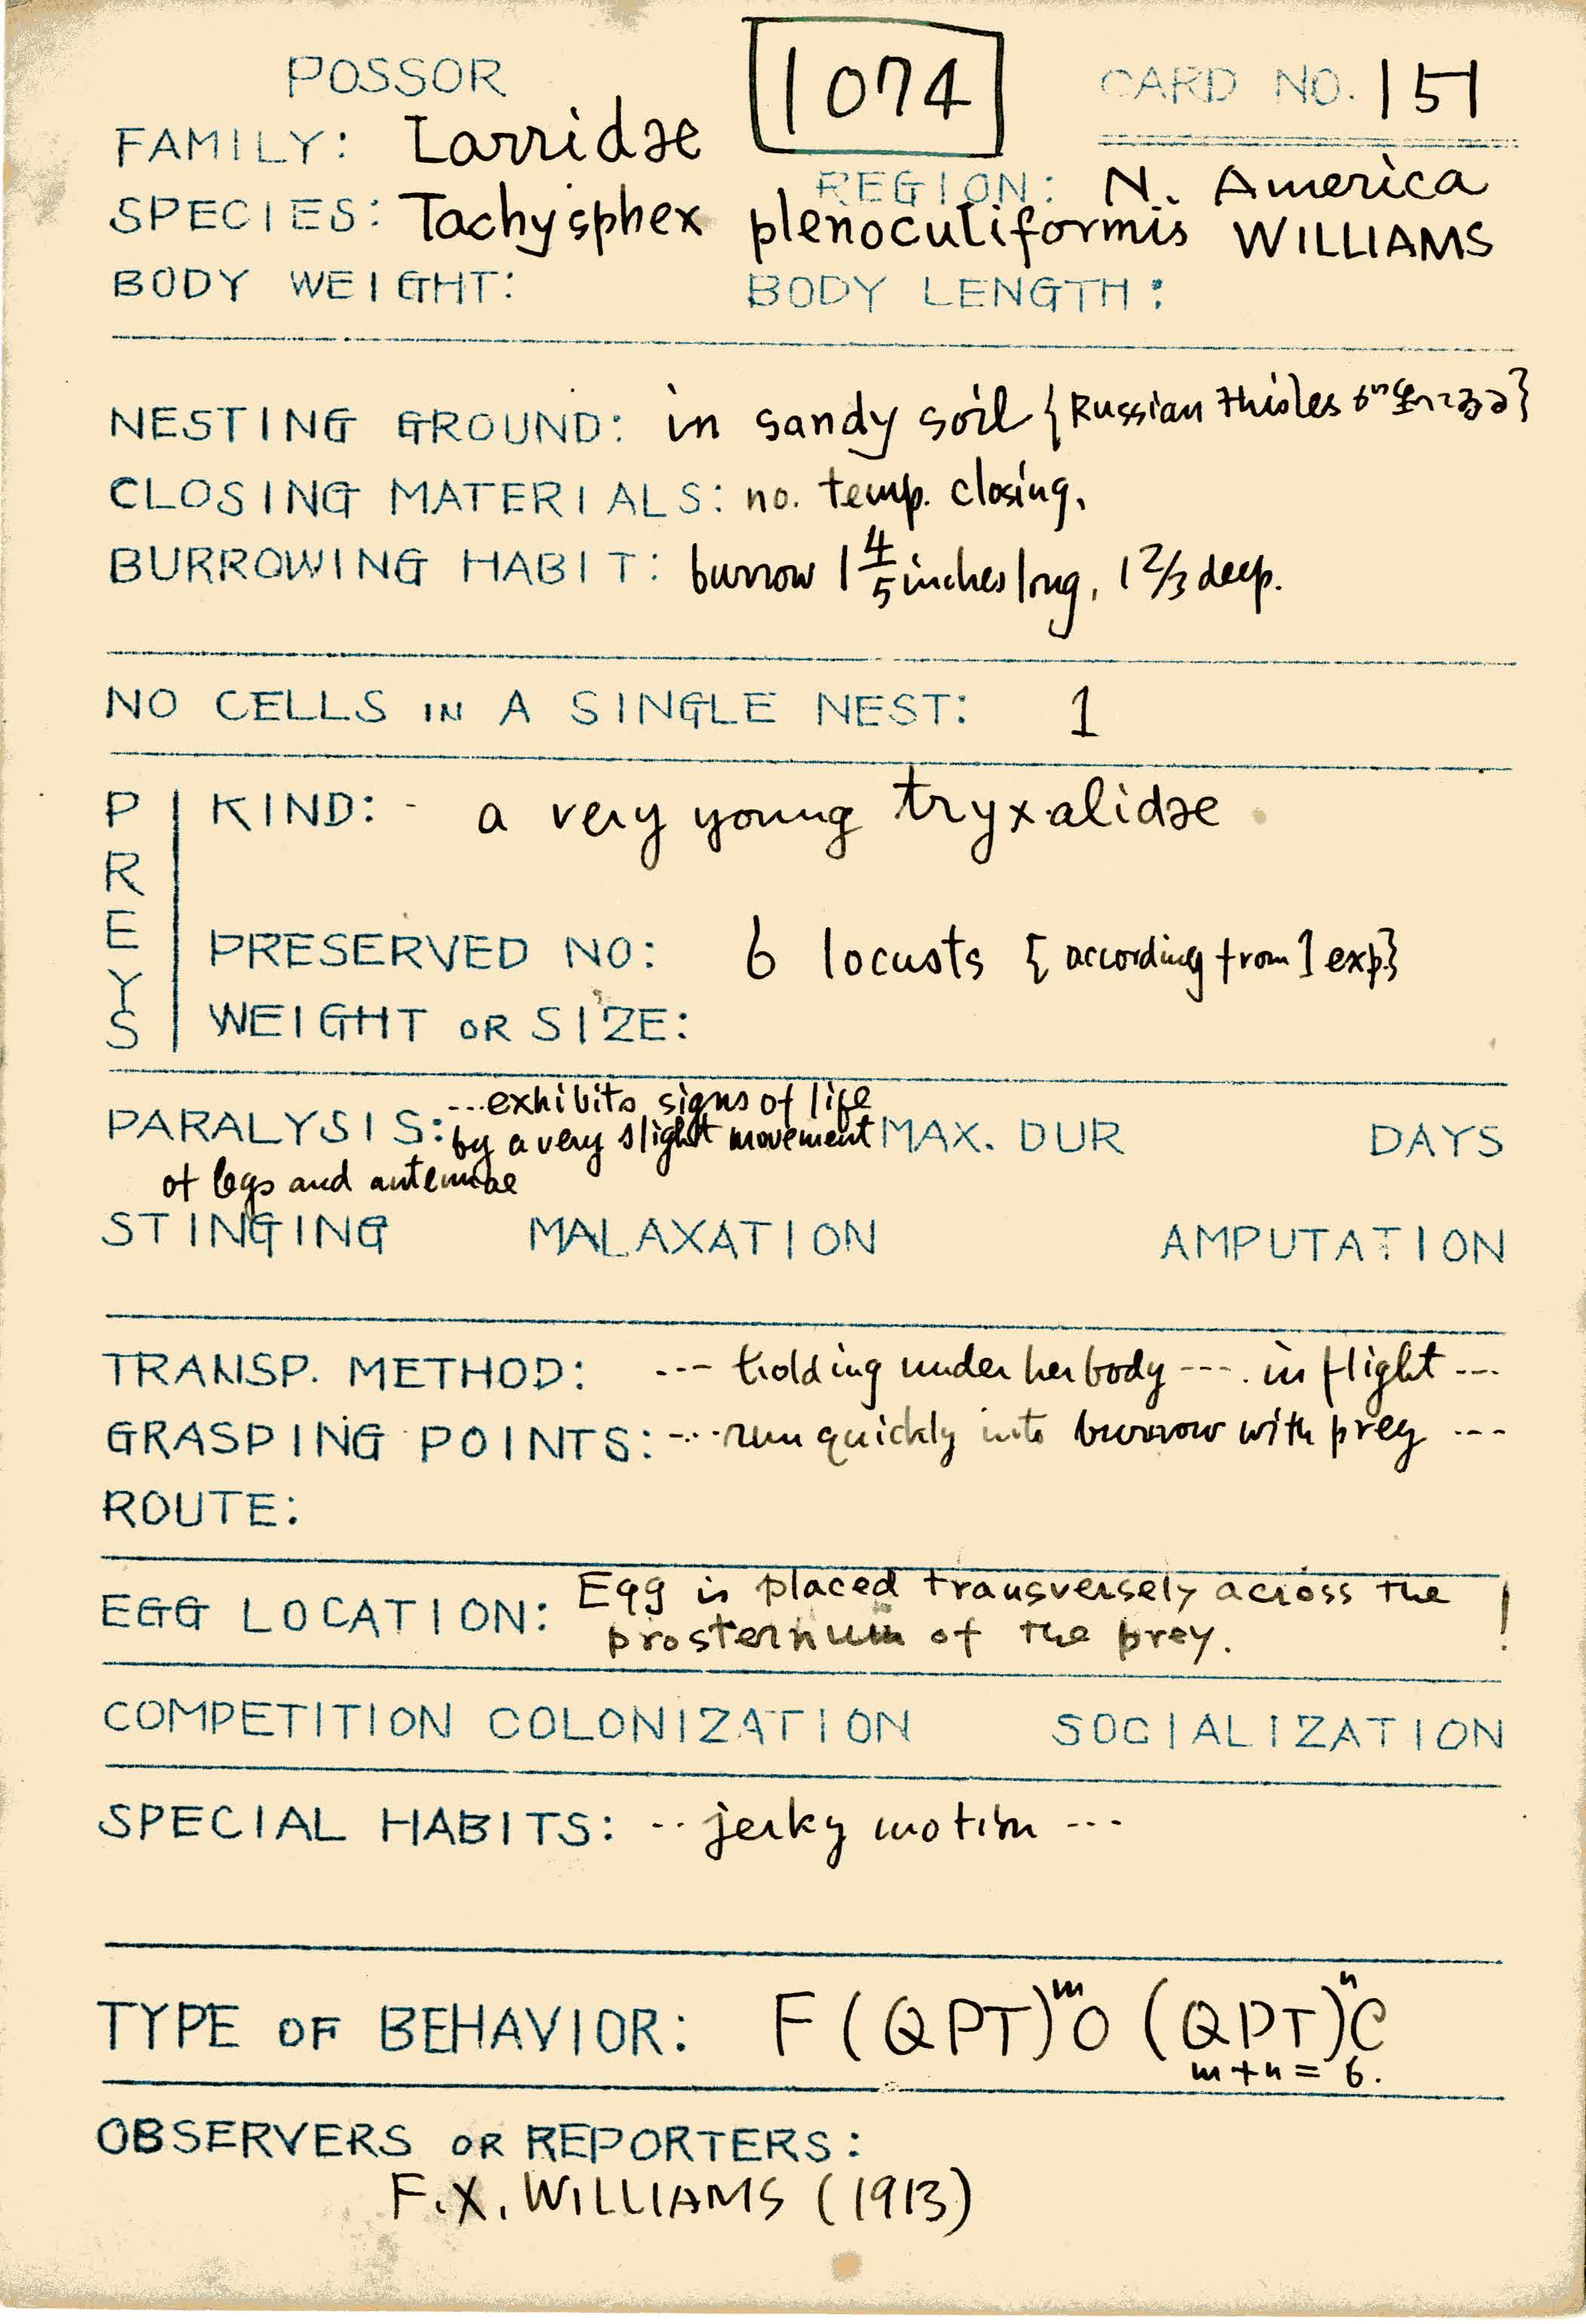 POSSOR
1074
CARD NO. 151
FAMILY: Larridae
REGION: N. America
SPECIES: Tachysphex plenoculiformis WILLIAMS
BODY WEIGHT: BODY LENGTH:
NESTING GROUND: in sandy soil {Russian thisles が生へてゐる}
CLOSING MATERIALS: no. temp. closing,
BURROWING HABIT: burrow 1 4/5 inches long, 1 2/3 deep.
NO CELLS IN A SINGLE NEST: 1
PREYS
KIND: - a very young tryxalidae
PRESERVED NO: 6 locusts {according from 1 exp.}
WEIGHT OR SIZE:
PARALYSIS: ...exhibits signs of life
by a very slight movement MAX. DUR DAYS
of legs and antennae
STINGING MALAXATION AMPUTATION
TRANSP. METHOD: --- holding under her body ---. in flight ---
GRASPING POINTS: --..run quickly into burrow with prey ---
ROUTE:
EGG LOCATION: Egg is placed transversely across the
prosternum of the prey. !
COMPETITION COLONIZATION SOCIALIZATION
SPECIAL HABITS: -- jerky motion ---
TYPE OF BEHAVIOR: F(QPT)^m O (QPT)^n C
m+n = 6.
OBSERVERS OR REPORTERS:
F.X. WILLIAMS (1913)